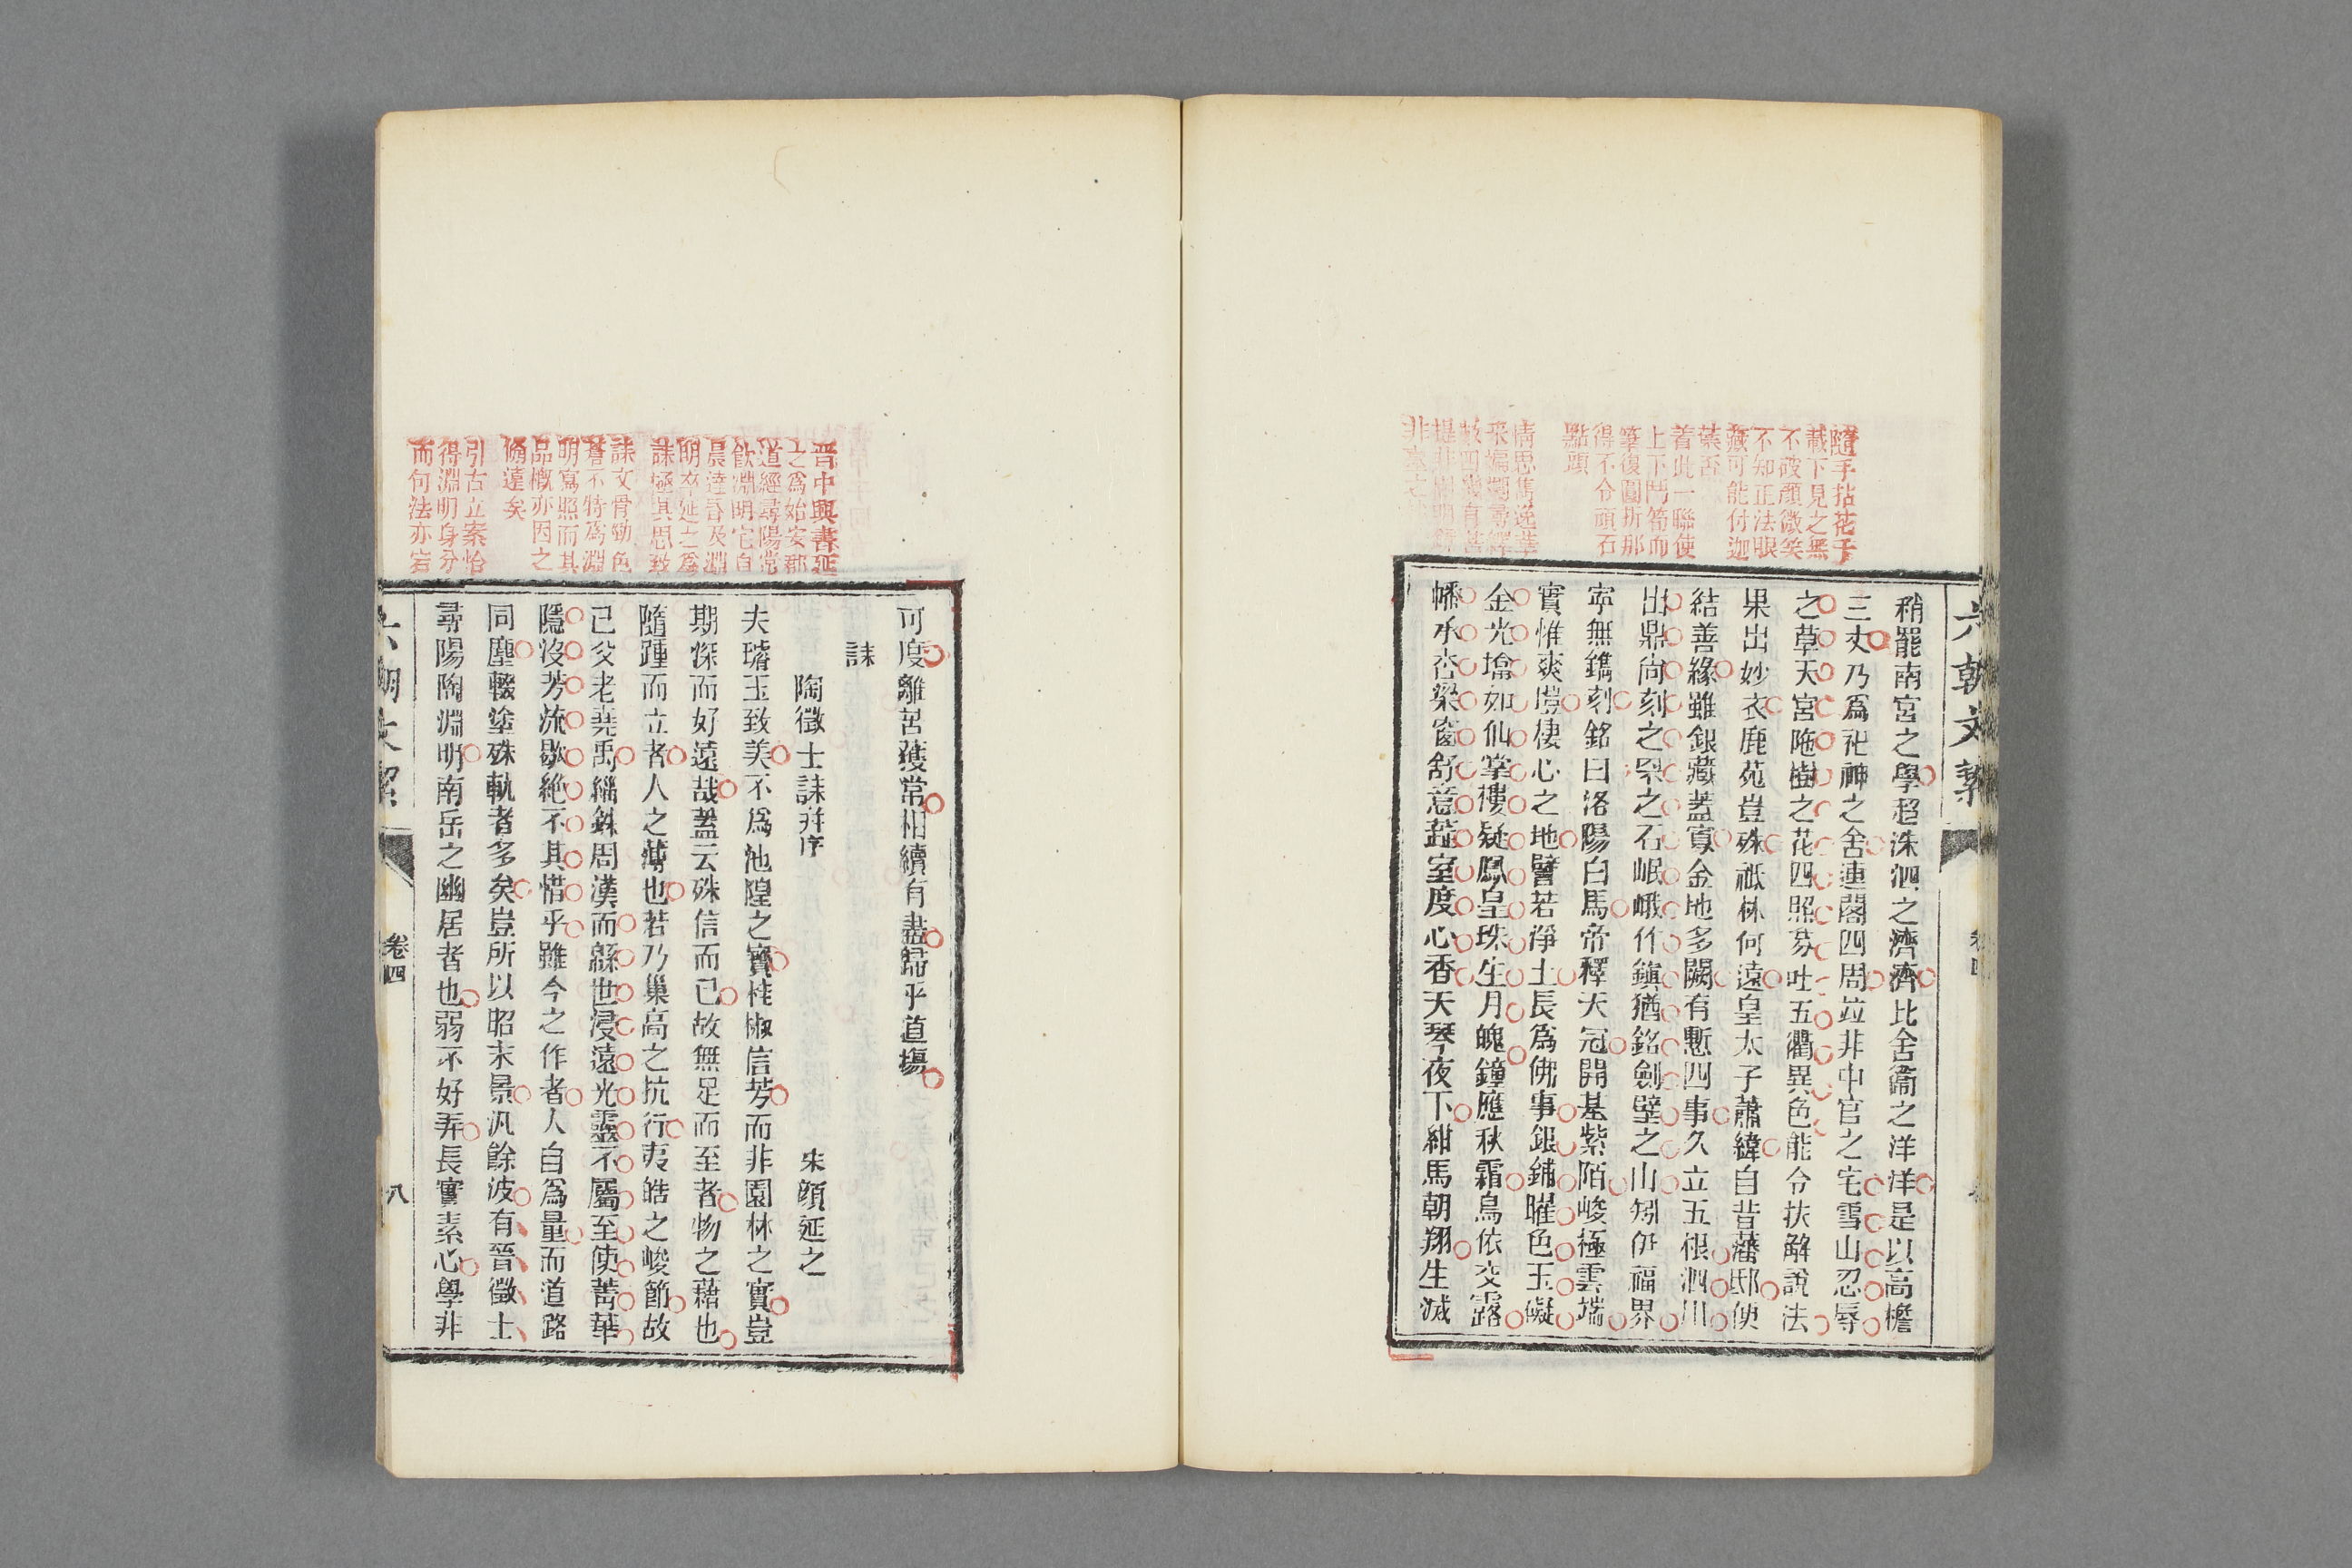 隨手拈花千
載下見之無
不破顏微笑
不知正法眼
藏可能付迦
葉否
着此一聯使
上下鬥筍而
筆復圓折那
得不令頑石
點頭
情思雋逸華
六朝文絜
稍罷南宮之學超洙泗之濟濟比舍衞之洋洋是以高檐
三丈乃爲祀神之舍連閣四周竝非中官之宅雪山忍辱
之草天宮陁樹之花四照芬吐五衢異色能令扶解說法
果出妙衣鹿苑豈殊祇林何遠皇太子蕭緯自昔藩邸便
結善緣雖銀藏蓋寡金地多闕有慙四事久立五根泗川
出鼎尚刻之罘之石岷峨作鎭猶銘劍壁之山矧伊福界
寧無鐫刻銘曰洛陽白馬帝釋天冠開基紫陌峻極雲端
實惟爽塏棲心之地譬若淨土長爲佛事銀鋪曜色玉礙
金光塔如仙掌樓疑鳳皇珠生月魄鐘應秋霜鳥依交露
幡承杏梁窗舒意蘂室度心香天琴夜下紺馬朝翔生滅
晋中興書延
之爲始安郡
道經尋陽常
飲淵明宅自
晨達昏及淵
明卒延之爲
誄極其思致
誄文骨勁色
蒼不特爲淵
明寫照而其
品概亦因之
翛遠矣
引古立案恰
得淵明身分
而何法亦宕
可度離苦獲常相續有盡歸乎道塲
誄
陶徵士誄并序 宋顔延之
夫璿玉致美不爲池隍之寶桂椒信芳而非園林之實豈
期㴱而好遠哉蓋云殊信而已故無足而至者物之藉也
隨踵而立者人之薄也若乃巢高之抗行夷皓之峻節故
已父老堯禹緇銖周漢而緜世浸遠光靈不屬至使菁華
隱沒芳流歇絶不其惜乎雖今之作者人自爲量而道路
同塵輟塗殊軌者多矣豈所以昭末景汎餘波有晉徵士
尋陽陶淵明南岳之幽居者也弱不好弄長實素心學非
六朝文絜 卷四 八